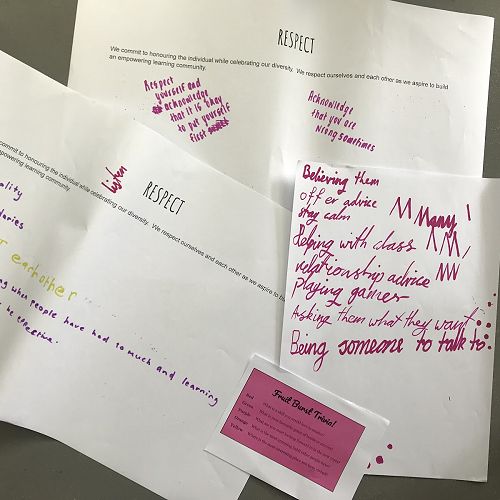 RESPECT
We commit to honouring the individual while celebrating our diversity. We respect ourselves and each other as we aspire to build
an empowering learning community.
Respect
yourself and
acknowledge
that it is okay
to put yourself
first
Acknowledge
that you are
wrong sometimes
RESPECT
commit to honouring the individual while celebrating our diversity. We respect ourselves and each other as we aspire to
empowering learning community.
Listen
ality
daries
each other
when people have had so much and learning
be effective.
Believing them
offer advice
stay calm
Many
Helping with class
relationship advice
Playing games
Asking them what they want
Being someone to talk to
Fruit Burst Trivia!
Red
Green
Purple
Orange
Yellow